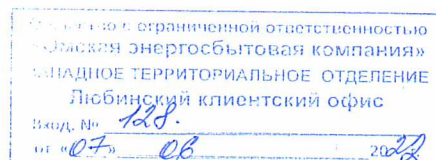 с ограниченной ответственностью
«Омская энергосбытовая компания»
ЗАПАДНОЕ ТЕРРИТОРИАЛЬНОЕ ОТДЕЛЕНИЕ
Любинский клиентский офис
Вход. № 128.
от «07» 06 2022